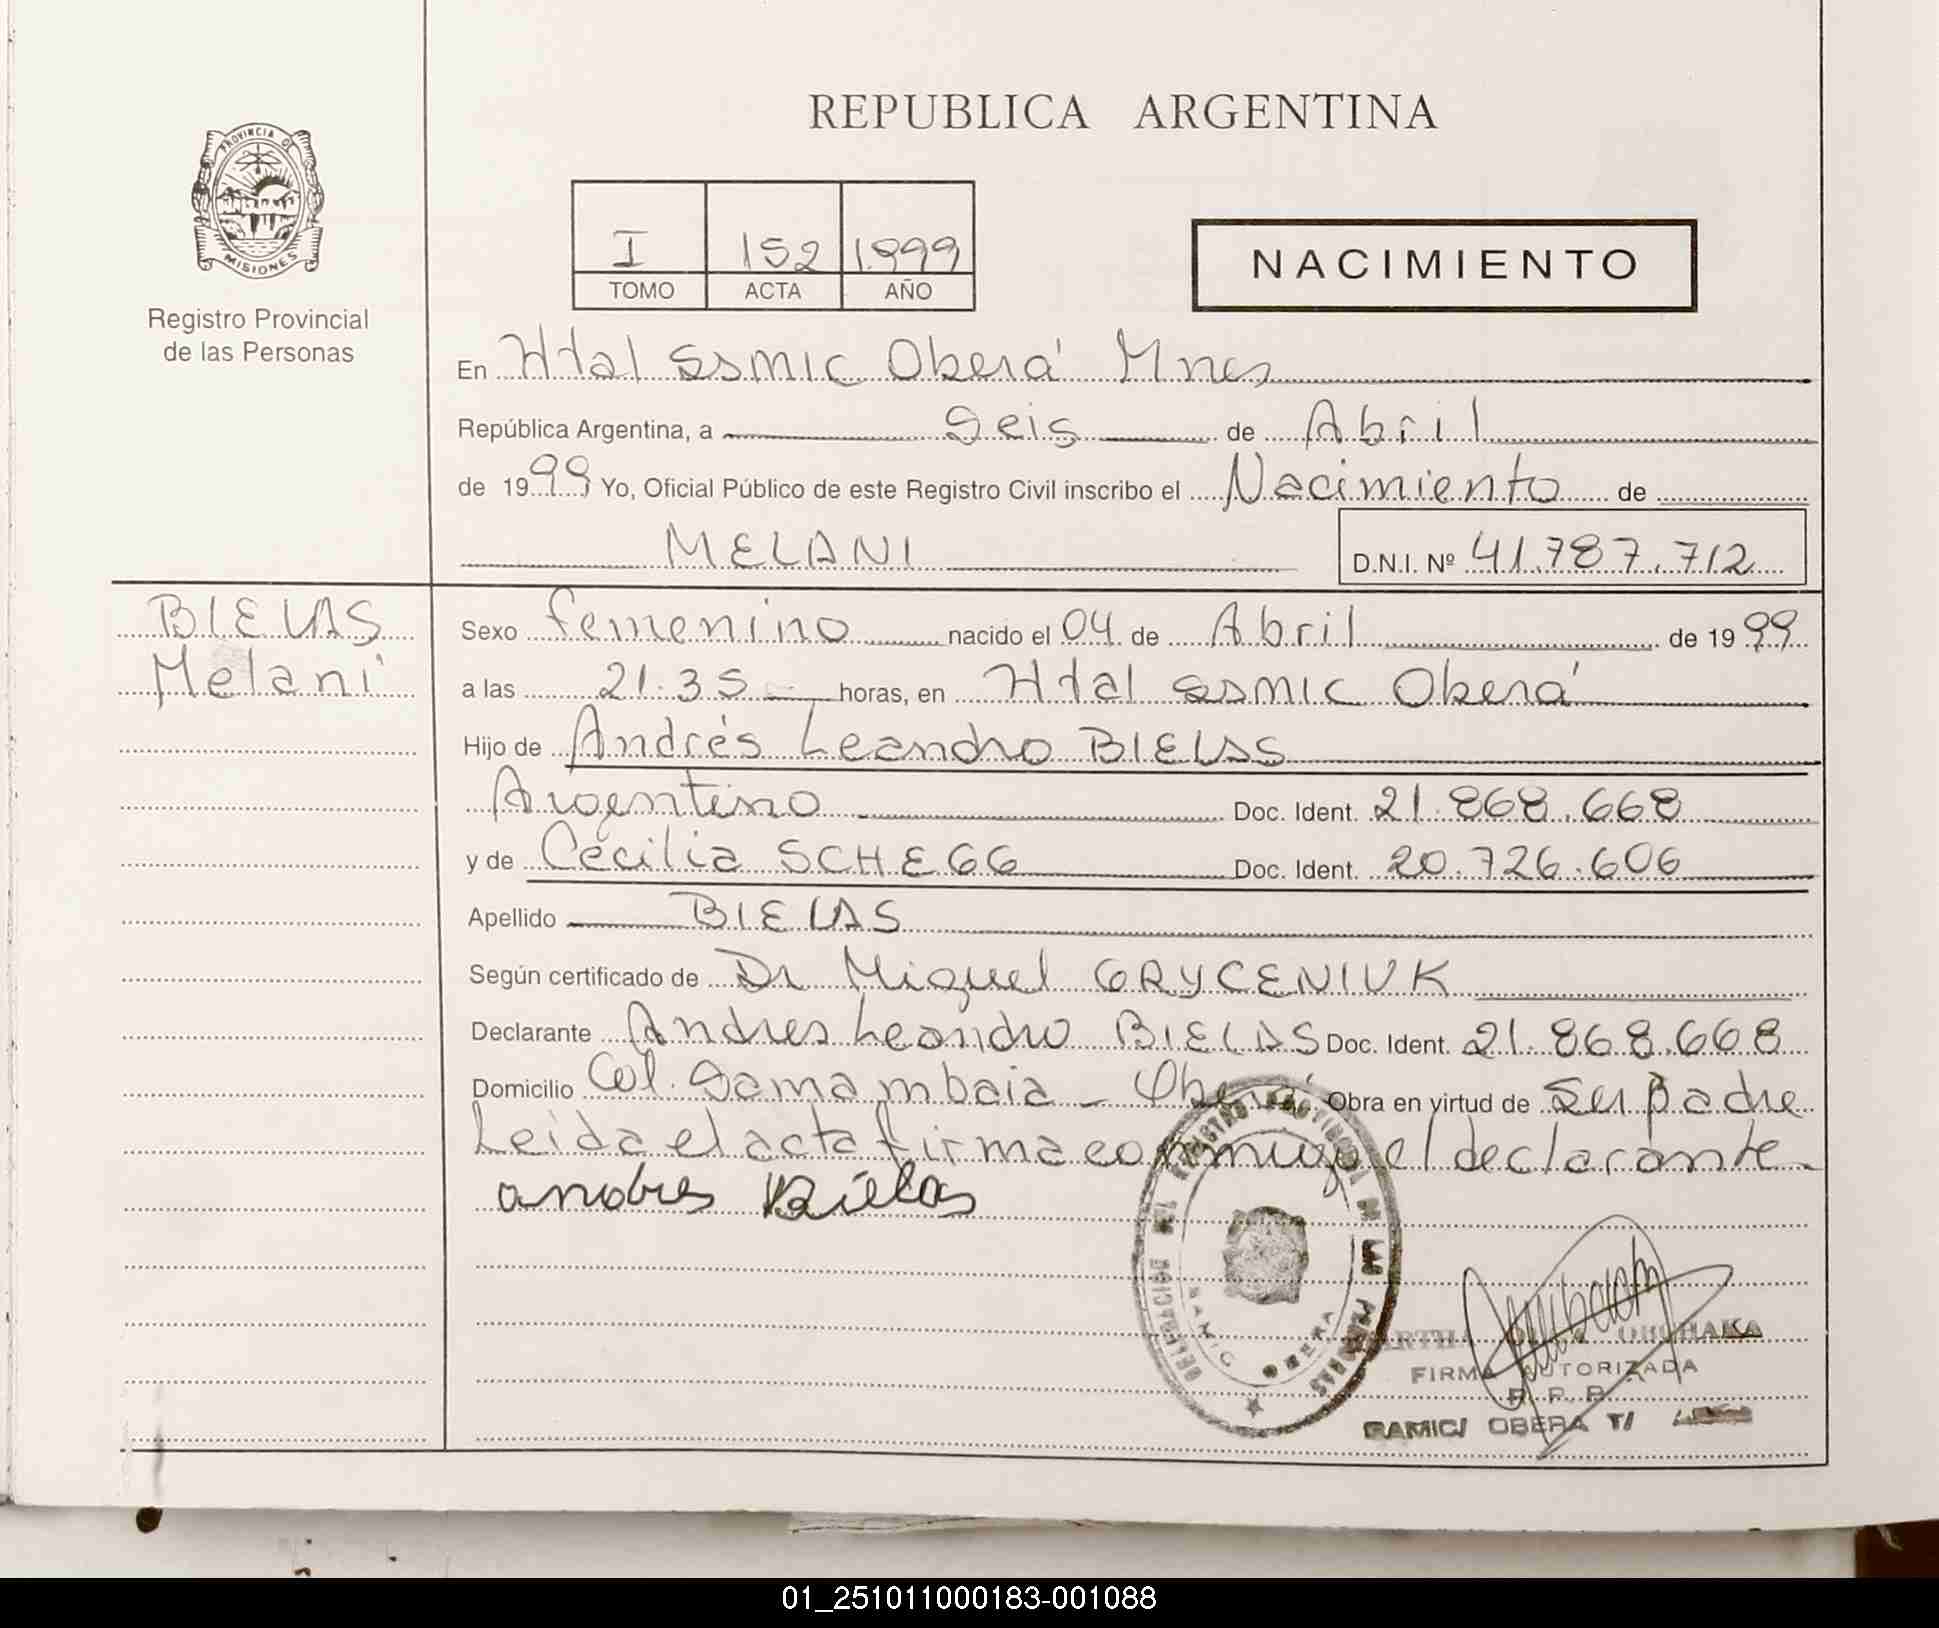 REPUBLICA ARGENTINA
PROVINCIA DE
MISIONES
Registro Provincial
de las Personas
I 152 1.999
TOMO ACTA AÑO
NACIMIENTO
En Htal SSMIC Oberá Mnes
República Argentina, a Seis de Abril
de 1999 Yo, Oficial Público de este Registro Civil inscribo el Nacimiento de
MELANI D.N.I. Nº 41.787.712
BIELAS
Melani
Sexo femenino nacido el 04 de Abril de 1999
a las 21.35 horas, en Htal SSMIC Oberá
Hijo de Andrés Leandro BIELAS
Argentino Doc. Ident. 21.868.668
y de Cecilia SCHEGG Doc. Ident. 20.726.606
Apellido BIELAS
Según certificado de Dr Miguel GRYCENIUK
Declarante Andres Leandro BIELAS Doc. Ident. 21.868.668
Domicilio Col. Samambaia - Oberá Obra en virtud de ser padre
Leida el acta firma conmigo el declarante
andres Bielas
DELEGACION DEL REGISTRO PROVINCIAL DE LAS PERSONAS
SAMIC OBERA
FIRMA AUTORIZADA
R. P. P.
SAMIC/ OBERA T/
01_251011000183-001088